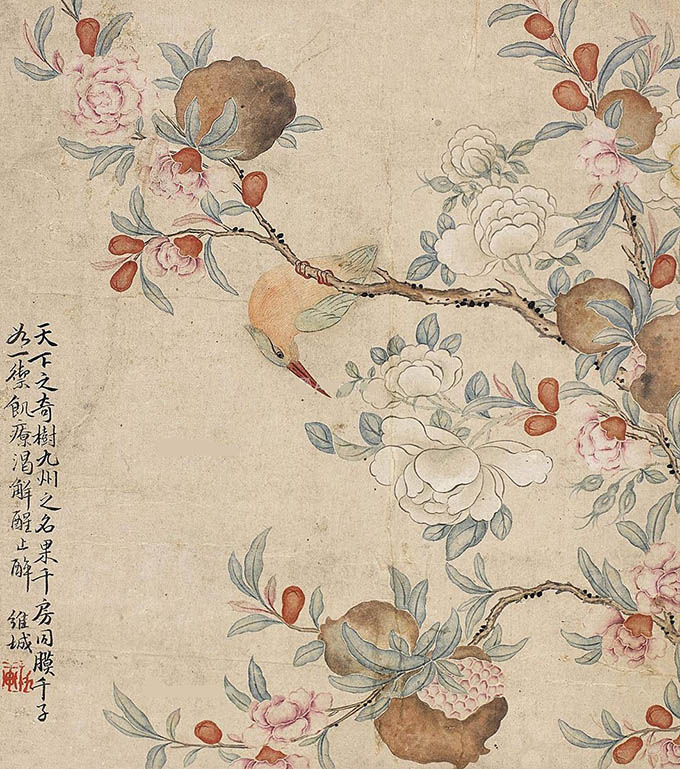 天下之奇樹九州之名果千房同膜千子
如一禦飢療渴解醒止醉 維城